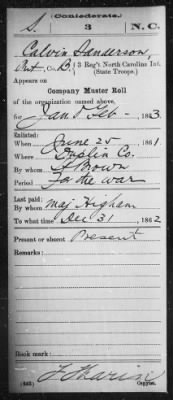 (Confederate.)
S. 3 N.C.
Calvin Sanderson,
Pvt, Co. B, 3 Reg't North Carolina Inf.
(State Troops.)
Appears on
Company Muster Roll
of the organization named above,
for Jan & Feb -, 1863
Enlisted:
When June 25, 1861
Where Duplin Co.
By whom Brown
Period For the war
Last paid:
By whom Maj Higham
To what time Dec 31, 1862
Present or absent Present
Remarks:
Book mark:
Copyist.